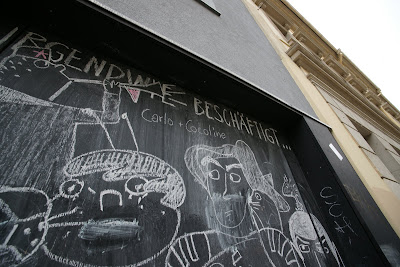 IRGENDWIE BESCHÄFTIGT...
Carlo + Caroline